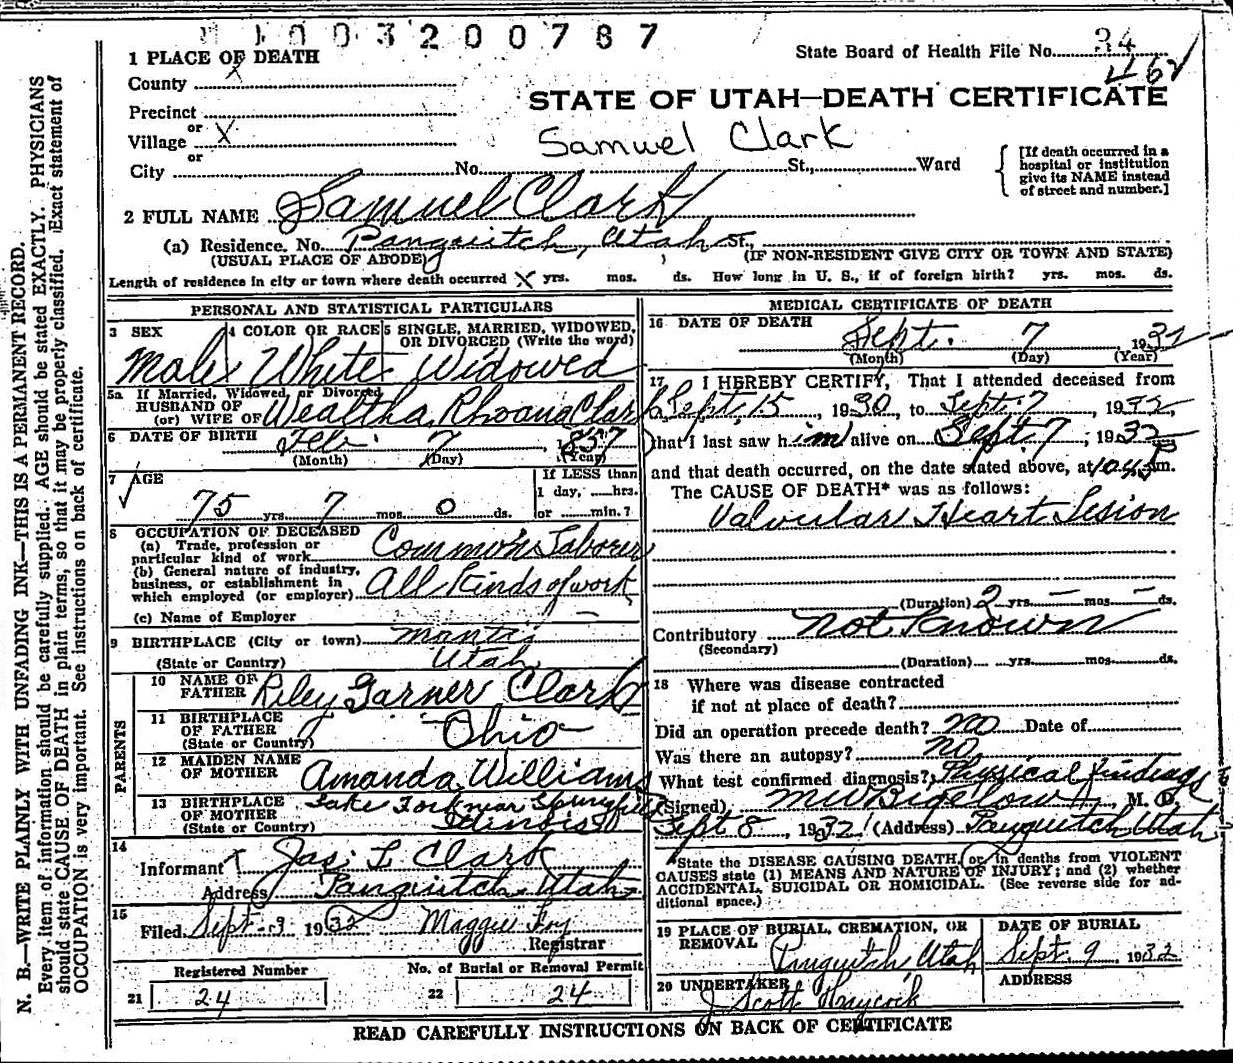 1003200787
State Board of Health File No. 34
462
1 PLACE OF DEATH
County X
STATE OF UTAH—DEATH CERTIFICATE
Precinct
or
Village X
Samuel Clark
or
City No. St., Ward
[If death occurred in a
hospital or institution
give its NAME instead
of street and number.]
2 FULL NAME Samuel Clark
(a) Residence. No. Panguitch, Utah St.,
(USUAL PLACE OF ABODE) (IF NON-RESIDENT GIVE CITY OR TOWN AND STATE)
Length of residence in city or town where death occurred X yrs. mos. ds. How long in U. S., if of foreign birth? yrs. mos. ds.
PERSONAL AND STATISTICAL PARTICULARS
3 SEX 4 COLOR OR RACE 5 SINGLE, MARRIED, WIDOWED,
OR DIVORCED (Write the word)
Male White Widowed
5a If Married, Widowed, or Divorced
HUSBAND OF
(or) WIFE OF Wealtha Rhoana Clark
6 DATE OF BIRTH Feb. 7 1857
(Month) (Day) (Year)
7 AGE If LESS than
1 day, hrs.
75 yrs. 7 mos. 0 ds. or min.?
8 OCCUPATION OF DECEASED
(a) Trade, profession or
particular kind of work Common Laborer
(b) General nature of industry,
business, or establishment in
which employed (or employer) All Kinds of work
(c) Name of Employer —
9 BIRTHPLACE (City or town) Manti
(State or Country) Utah
PARENTS
10 NAME OF
FATHER Riley Garner Clark
11 BIRTHPLACE
OF FATHER
(State or Country) Ohio
12 MAIDEN NAME
OF MOTHER Amanda Williams
13 BIRTHPLACE
OF MOTHER Lake Fork near Springfield
(State or Country) Illinois
14
Informant Jas. L Clark
Address Panguitch, Utah
15
Filed Sept. 9 1932 Maggie Foy
Registrar
Registered Number No. of Burial or Removal Permit
21 24 22 24
MEDICAL CERTIFICATE OF DEATH
16 DATE OF DEATH
Sept. 7, 1932
(Month) (Day) (Year)
17 I HEREBY CERTIFY, That I attended deceased from
Sept. 15, 1930, to Sept. 7, 1932,
that I last saw him alive on Sept. 7, 1932
and that death occurred, on the date stated above, at 1045 P m.
The CAUSE OF DEATH* was as follows:
Valvular Heart Lesion
(Duration) 2 yrs. — mos. — ds.
Contributory Not Known
(Secondary)
(Duration) yrs. mos. ds.
18 Where was disease contracted
if not at place of death?
Did an operation precede death? no Date of
Was there an autopsy? no
What test confirmed diagnosis? Physical findings
(Signed) M W Bigelow, M. D.
Sept 8, 1932 (Address) Panguitch Utah
*State the DISEASE CAUSING DEATH, or in deaths from VIOLENT
CAUSES state (1) MEANS AND NATURE OF INJURY; and (2) whether
ACCIDENTAL, SUICIDAL OR HOMICIDAL. (See reverse side for ad-
ditional space.)
19 PLACE OF BURIAL, CREMATION, OR
REMOVAL
Panguitch, Utah
DATE OF BURIAL
Sept. 9, 1932
20 UNDERTAKER
J Scott Haycock
ADDRESS
READ CAREFULLY INSTRUCTIONS ON BACK OF CERTIFICATE
N. B.—WRITE PLAINLY WITH UNFADING INK—THIS IS A PERMANENT RECORD.
Every item of information should be carefully supplied. AGE should be stated EXACTLY. PHYSICIANS
should state CAUSE OF DEATH in plain terms, so that it may be properly classified. Exact statement of
OCCUPATION is very important. See instructions on back of certificate.